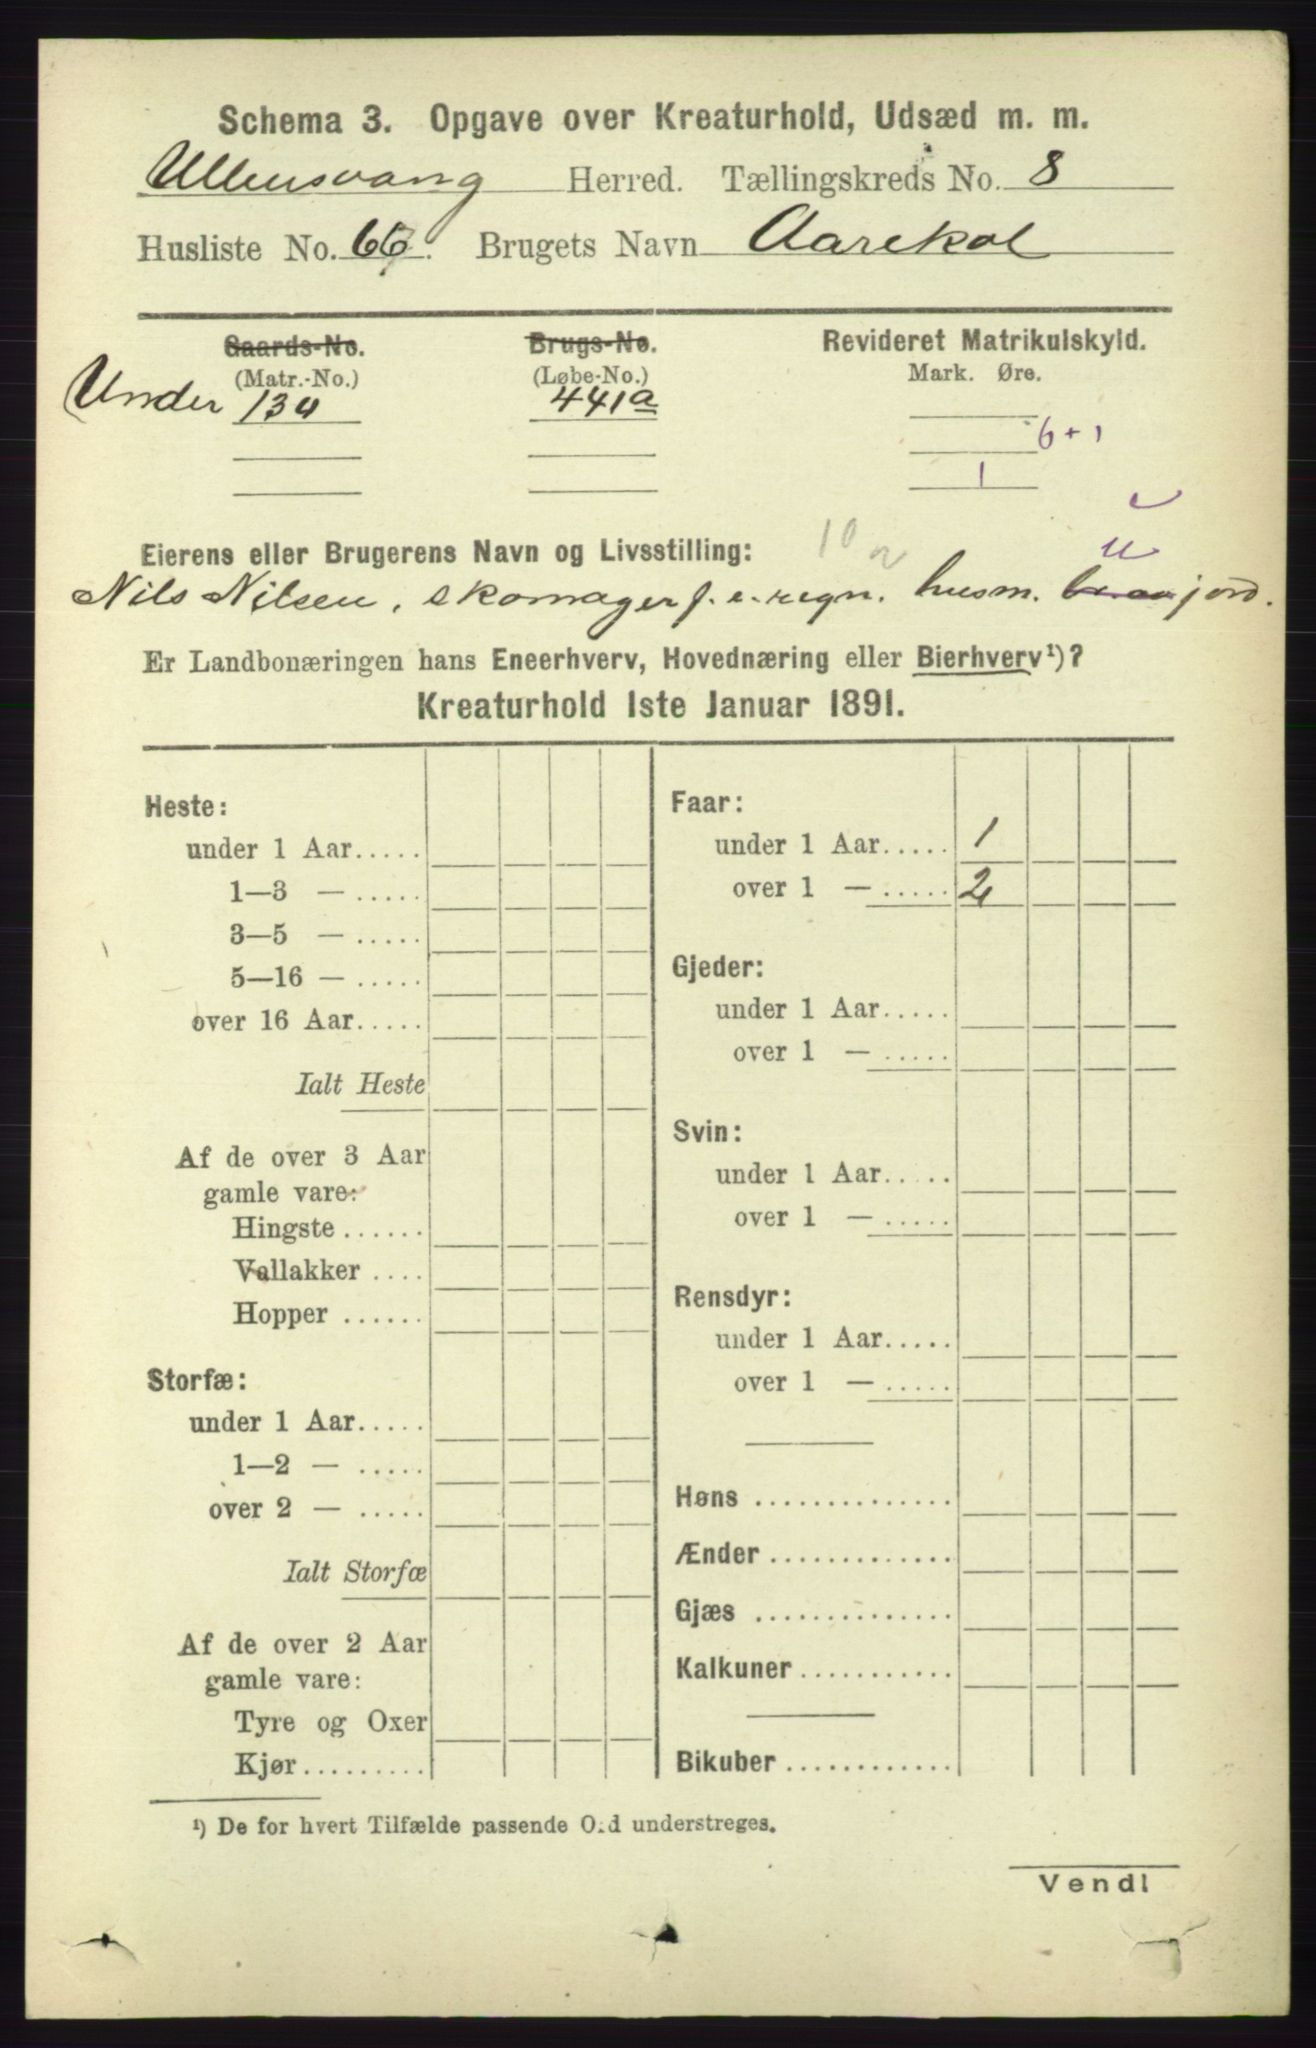 Schema 3. Opgave over Kreaturhold, Udsæd m. m.
Ullensvang Herred. Tællingskreds No. 8
Husliste No. 66. Brugets Navn Aarekol
Gaards-No. Brugs-No. Revideret Matrikulskyld.
(Matr.-No.) (Løbe-No.) Mark. Øre.
Under 134 441a
6+1
1
Eierens eller Brugerens Navn og Livsstilling: 10
Nils Nilsen, skomager f. e. regn. husm. u jord.
Er Landbonæringen hans Eneerhverv, Hovednæring eller Bierhverv¹)?
Kreaturhold 1ste Januar 1891.
Heste:
under 1 Aar.....
1—3 — .....
3—5 — .....
5—16 — .....
over 16 Aar.....
Ialt Heste
Af de over 3 Aar
gamle vare:
Hingste ......
Vallakker ....
Hopper ......
Storfæ:
under 1 Aar.....
1—2 — .....
over 2 — .....
Ialt Storfæ
Af de over 2 Aar
gamle vare:
Tyre og Oxer
Kjør.........
Faar:
under 1 Aar..... 1
over 1 — ..... 2
Gjeder:
under 1 Aar.....
over 1 — .....
Svin:
under 1 Aar.....
over 1 — .....
Rensdyr:
under 1 Aar.....
over 1 — .....
Høns ..............
Ænder .............
Gjæs ..............
Kalkuner ...........
Bikuber ............
¹) De for hvert Tilfælde passende Ord understreges.
Vend!